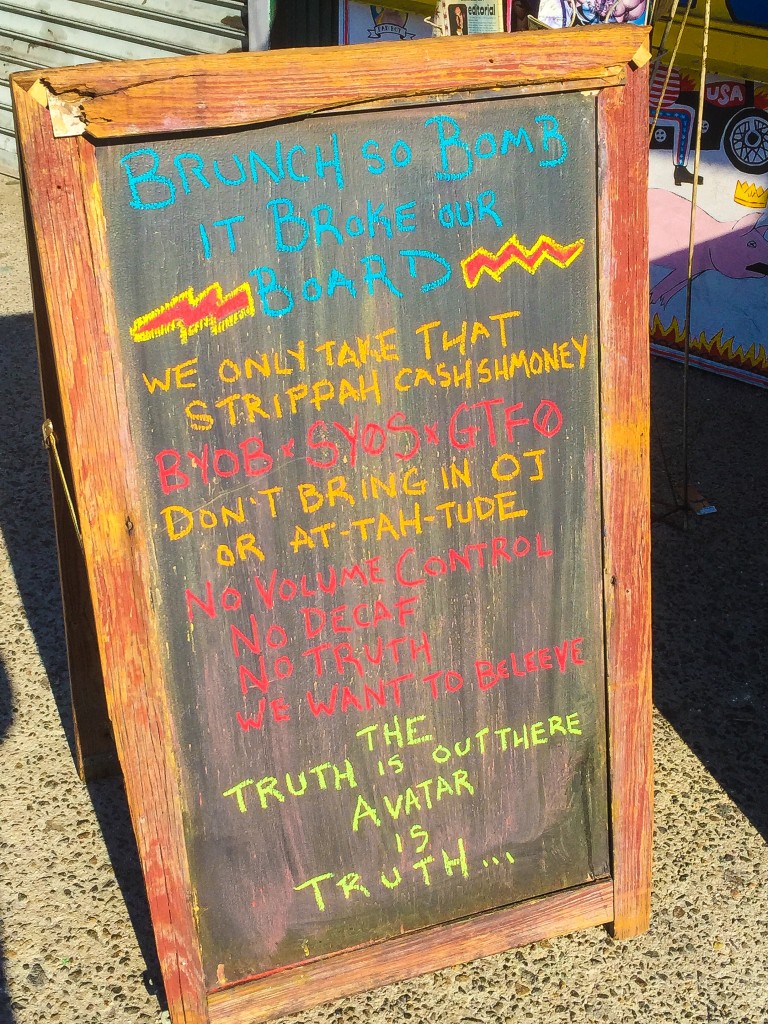 editorial
USA
BRUNCH SO BOMB
IT BROKE OUR
BOARD
WE ONLY TAKE THAT
STRIPPAH CASHSHMONEY
BYOB × SYOS × GTFO
DON'T BRING IN OJ
OR AT-TAH-TUDE
NO VOLUME CONTROL
NO DECAF
NO TRUTH
WE WANT TO BELEEVE
THE
TRUTH IS OUT THERE
AVATAR
IS
TRUTH...